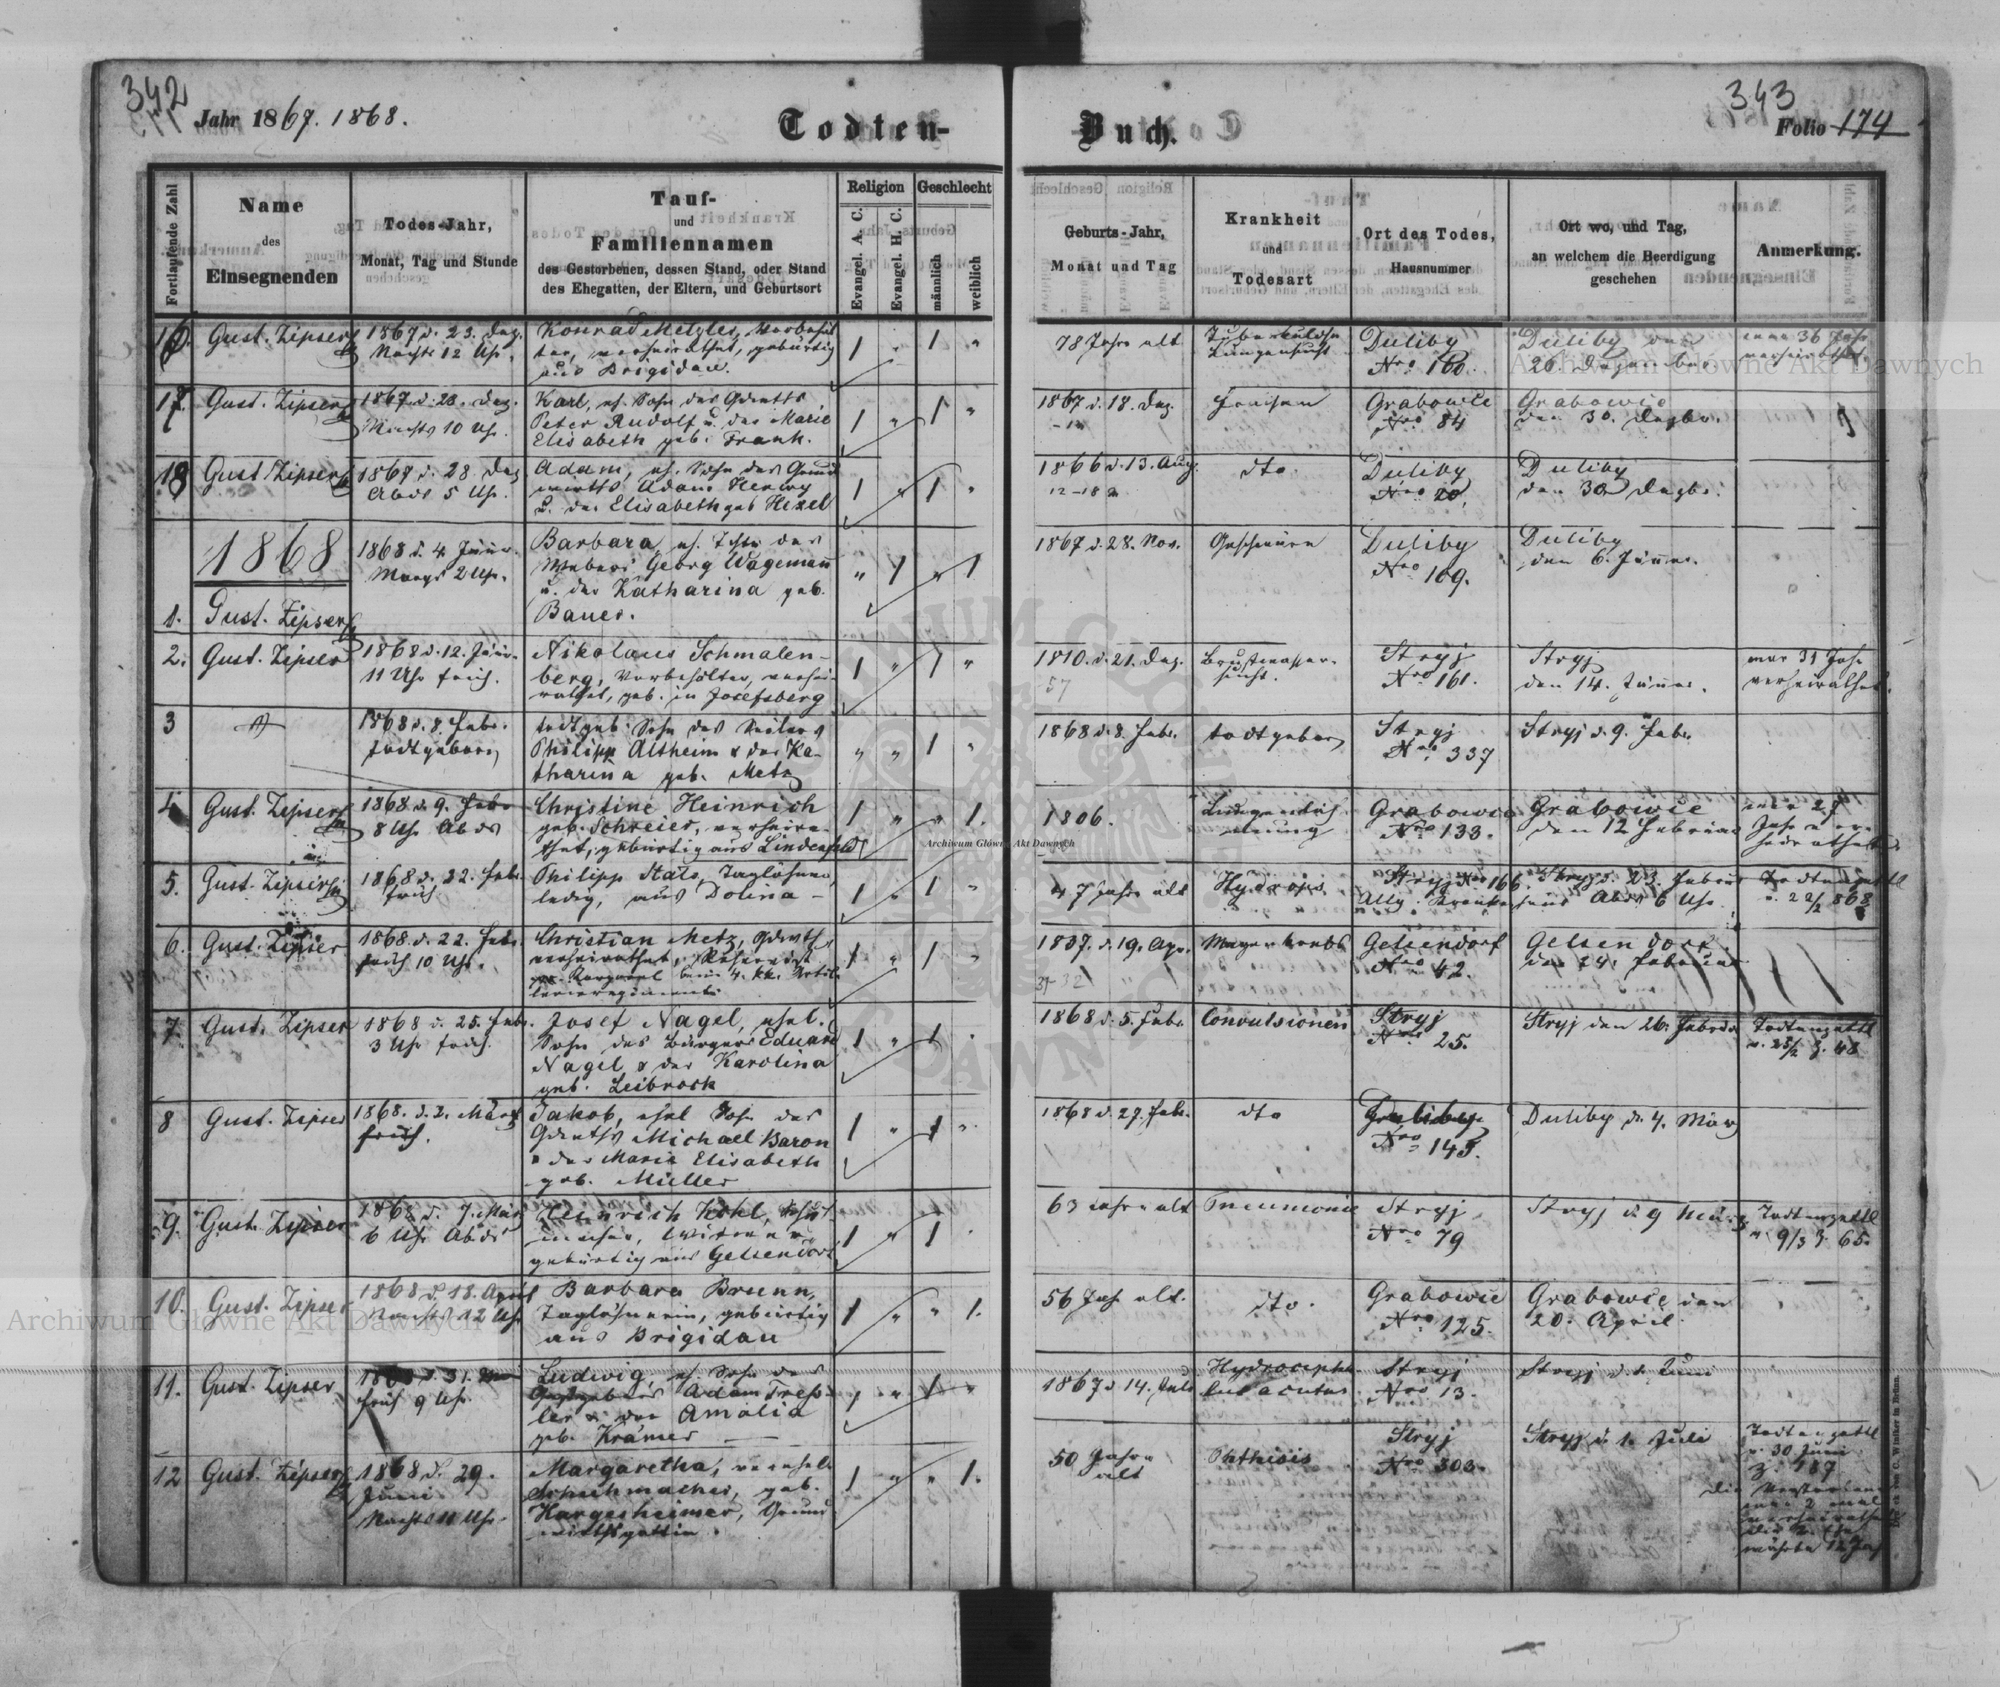 342
Jahr 1867. 1868.
Todten-
Buch.
343
Folio 174
Fortlaufende Zahl
Name
des
Einsegnenden
Todes-Jahr,
Monat, Tag und Stunde
Tauf-
und
Familiennamen
des Gestorbenen, dessen Stand, oder Stand
des Ehegatten, der Eltern, und Geburtsort
Religion
Evangel. A. C.
Evangel. H. C.
Geschlecht
männlich
weiblich
Geburts-Jahr,
Monat und Tag
Krankheit
und
Todesart
Ort des Todes,
Hausnummer
Ort wo, und Tag,
an welchem die Beerdigung
geschehen
Anmerkung.
16. Gust. Zipser
1867 d. 23. Dez.
Nachts 12 Uhr.
Konrad Metzler,
verheirathet, gebürtig
aus Brigidau.
78 Jahre alt
Tuberkulose
Lungensucht
Duliby
Nro 160.
Duliby
26. Dezember
war 36 Jahr
verheirathet.
17. Gust. Zipser
1867 d. 28. Dez.
Nachts 10 Uhr.
Karl, eh. Sohn des
Peter Rudolf u. der Marie
Elisabeth geb. Frank.
1867 d. 18. Dez.
Fraisen
Grabowce
Nro 84
Grabowce
den 30. Dezbr.
18 Gust. Zipser
1867 d. 28 Dez
Abds 5 Uhr.
Adam, eh. Sohn des Grund
wirths Adam Herwy
u. der Elisabeth geb Hexel
1866 d. 13. Aug.
dto
Duliby
Nro 20
Duliby
den 30 Dezbr.
1868
1. Gust. Zipser
1868 d. 4. Jänner
Morgs 2 Uhr.
Barbara, eh. Tochter des
Webers Georg Wagemann
u. der Katharina geb.
Bauer.
1867 d. 28. Nov.
Duliby
Nro 109.
Duliby
den 6. Jänner.
2. Gust. Zipser
1868 d. 12. Jänn.
11 Uhr früh.
Nikolaus Schmalen-
berg, Vorbehälter, verhei-
rathet, geb. in Josefsberg
1810. d. 21. Dez.
57
Brustwasser-
sucht.
Stryj
Nro 161.
Stryj
den 14. Jänner.
war 31 Jahr
verheirathet.
3
1868 d. 8. Febr.
todtgeboren
todtgeb. Sohn des Seilers
Philipp Altheim & der Ka-
tharina geb. Metz
1868 d. 8. Febr.
todtgeboren
Stryj
Nro 337
Stryj d. 9. Febr.
4 Gust. Zipser
1868 d. 9. Febr
8 Uhr Abds
Christine Heinrich
geb. Schreier, verheira-
thet, gebürtig aus Lindenfeld
1806.
Grabowce
Nro 133.
Grabowce
den 12 Februar
5. Gust. Zipser
1868 d. 22. Febr.
früh
Philipp Stals, Taglöhner,
ledig, aus Dolina -
47 Jahre alt
Hydrops.
Stryj Nro 166
Allg. Krankenhaus
Stryj d. 23. Februar
Abds 6 Uhr
Todtenzettl
v. 22/2 868
6. Gust. Zipser
1868 d. 22. Febr.
früh 10 Uhr.
Christian Metz,
verheirathet,
beim 4. kk. Artil-
lerieregiment
1837. d. 19. Apr.
Magenkrebs
Gelsendorf
Nro 42.
Gelsendorf
den 24. Februar
7. Gust. Zipser
1868 d. 25. Febr.
3 Uhr früh.
Josef Nagel, ehel.
Sohn des Bürgers Eduard
Nagel & der Karolina
geb. Leibrock
1868 d. 5. Febr.
Convulsionen
Stryj
Nro 25.
Stryj den 26. Februar
Todtenzettl
v. 25/2 z. 48
8 Gust. Zipser
1868. d. 2. März
früh.
Jakob, ehel Sohn des
Michael Baron
& der Marie Elisabeth
geb. Müller
1868 d. 27. Febr.
dto
Duliby
Nro 145.
Duliby d. 4. März
9. Gust. Zipser
1868 d. 7. März
6 Uhr Abds
Heinrich Kohl, Schuh-
macher, Witwer
gebürtig aus Gelsendorf
63 Jahre alt
Pneumonie
Stryj
Nro 79
Stryj d. 9 März
Todtenzettl
v. 9/3 z. 65.
10. Gust. Zipser
1868 d. 18. April
Nachts 12 Uhr
Barbara Brunn,
Taglöhnerin, gebürtig
aus Brigidau
56 Jahr alt.
dto.
Grabowce
Nro 125.
Grabowce den
20. April.
11. Gust. Zipser
1868 d. 31. Mai
früh 9 Uhr
Ludwig, eh. Sohn des
Adam Tress-
ler & der Amalia
geb. Krämer
1867 d 14. Juli
Hydrocepha-
lus acutus
Stryj
Nro 13.
Stryj d. 1. Juni
12 Gust. Zipser
1868 d. 29.
Juni
Nachts 11 Uhr
Margaretha, verehel.
Schuhmacher, geb.
Hargesheimer, Grund-
wirthsgattin.
50 Jahre
alt
Phthisis
Stryj
Nro 303.
Stryj d. 1. Juli
Todtenzettl
v. 30 Juni
z. 187
Die Verstorbene
war 2 mal
verheirathet
die 2. Ehe
währte 12 Jahr
Druck von C. Winiker in Brünn.
Archiwum Główne Akt Dawnych
Archiwum Główne Akt Dawnych
Archiwum Główne Akt Dawnych